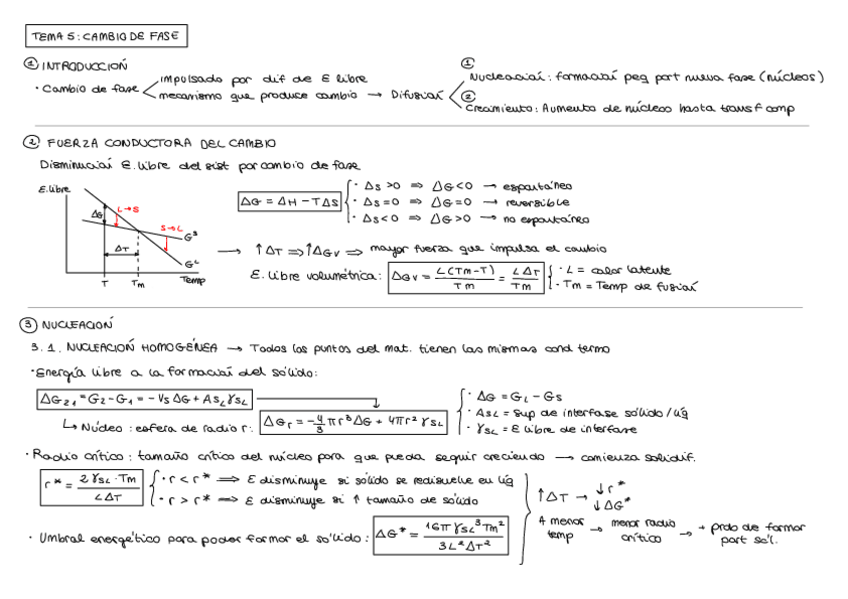 TEMA 5: CAMBIO DE FASE
① INTRODUCCIÓN
· Cambio de fase
impulsado por dif de E libre
mecanismo que produce cambio → Difusión
①
Nucleación: formación peq part nueva fase (núcleos)
②
Crecimiento: Aumento de núcleos hasta transf comp
② FUERZA CONDUCTORA DEL CAMBIO
Disminución E. libre del sist por cambio de fase
E. libre
ΔG
L→S
S→L
G^S
G^L
ΔT
T
Tm
Temp
ΔG = ΔH - TΔS
· ΔS > 0 ⇒ ΔG < 0 → espontáneo
· ΔS = 0 ⇒ ΔG = 0 → reversible
· ΔS < 0 ⇒ ΔG > 0 → no espontáneo
→ ↑ΔT ⇒ ↑ΔGv ⇒ mayor fuerza que impulsa el cambio
E. libre volumétrica: ΔGv = L(Tm-T)/Tm = LΔT/Tm
· L = calor latente
· Tm = Temp de fusión
③ NUCLEACIÓN
3.1. NUCLEACIÓN HOMOGÉNEA → Todos los puntos del mat. tienen las mismas cond termo
· Energía libre a la formación del sólido:
ΔG₂₁ = G₂ - G₁ = - Vs ΔG + A_SL γ_SL
↳ Núcleo: esfera de radio r: ΔGr = -4/3 πr³ΔG + 4πr² γ_SL
· ΔG = G_L - G_S
· A_SL = Sup de interfase sólido/líq
· γ_SL = E libre de interfase
· Radio crítico: tamaño crítico del núcleo para que pueda seguir creciendo → comienza solidif.
r* = 2γ_SL · Tm / LΔT
· r < r* ⇒ E disminuye si sólido se redisuelve en líq
· r > r* ⇒ E disminuye si ↑ tamaño de sólido
· Umbral energético para poder formar el sólido: ΔG* = 16π γ_SL³ Tm² / 3L²ΔT²
↑ΔT → ↓r*
↓ΔG*
A menor temp → menor radio crítico → + prob de formar part sól.